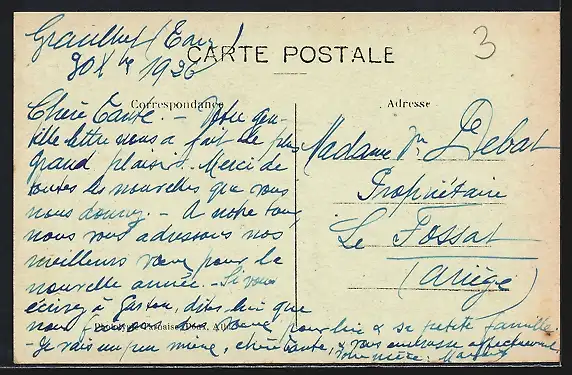 Graulhet (Tarn)
30 Xbre 1926
CARTE POSTALE
3
Correspondance
Chère Tante. - Votre gen-
tille lettre nous a fait le plus
grand plaisir. Merci de
toutes les nouvelles que vous
nous donnez. - A notre tour,
nous vous adressons nos
meilleurs vœux pour la
nouvelle année. - Si vous
écrivez à Gaston, dites-lui que
nous vœux pour lui & sa petite famille.
- Je vais un peu mieux, chère tante, & vous embrasse affectueusement,
Votre nièce:
Adresse
Madame Vve Debat
Propriétaire
Le Fossat
(Ariège)